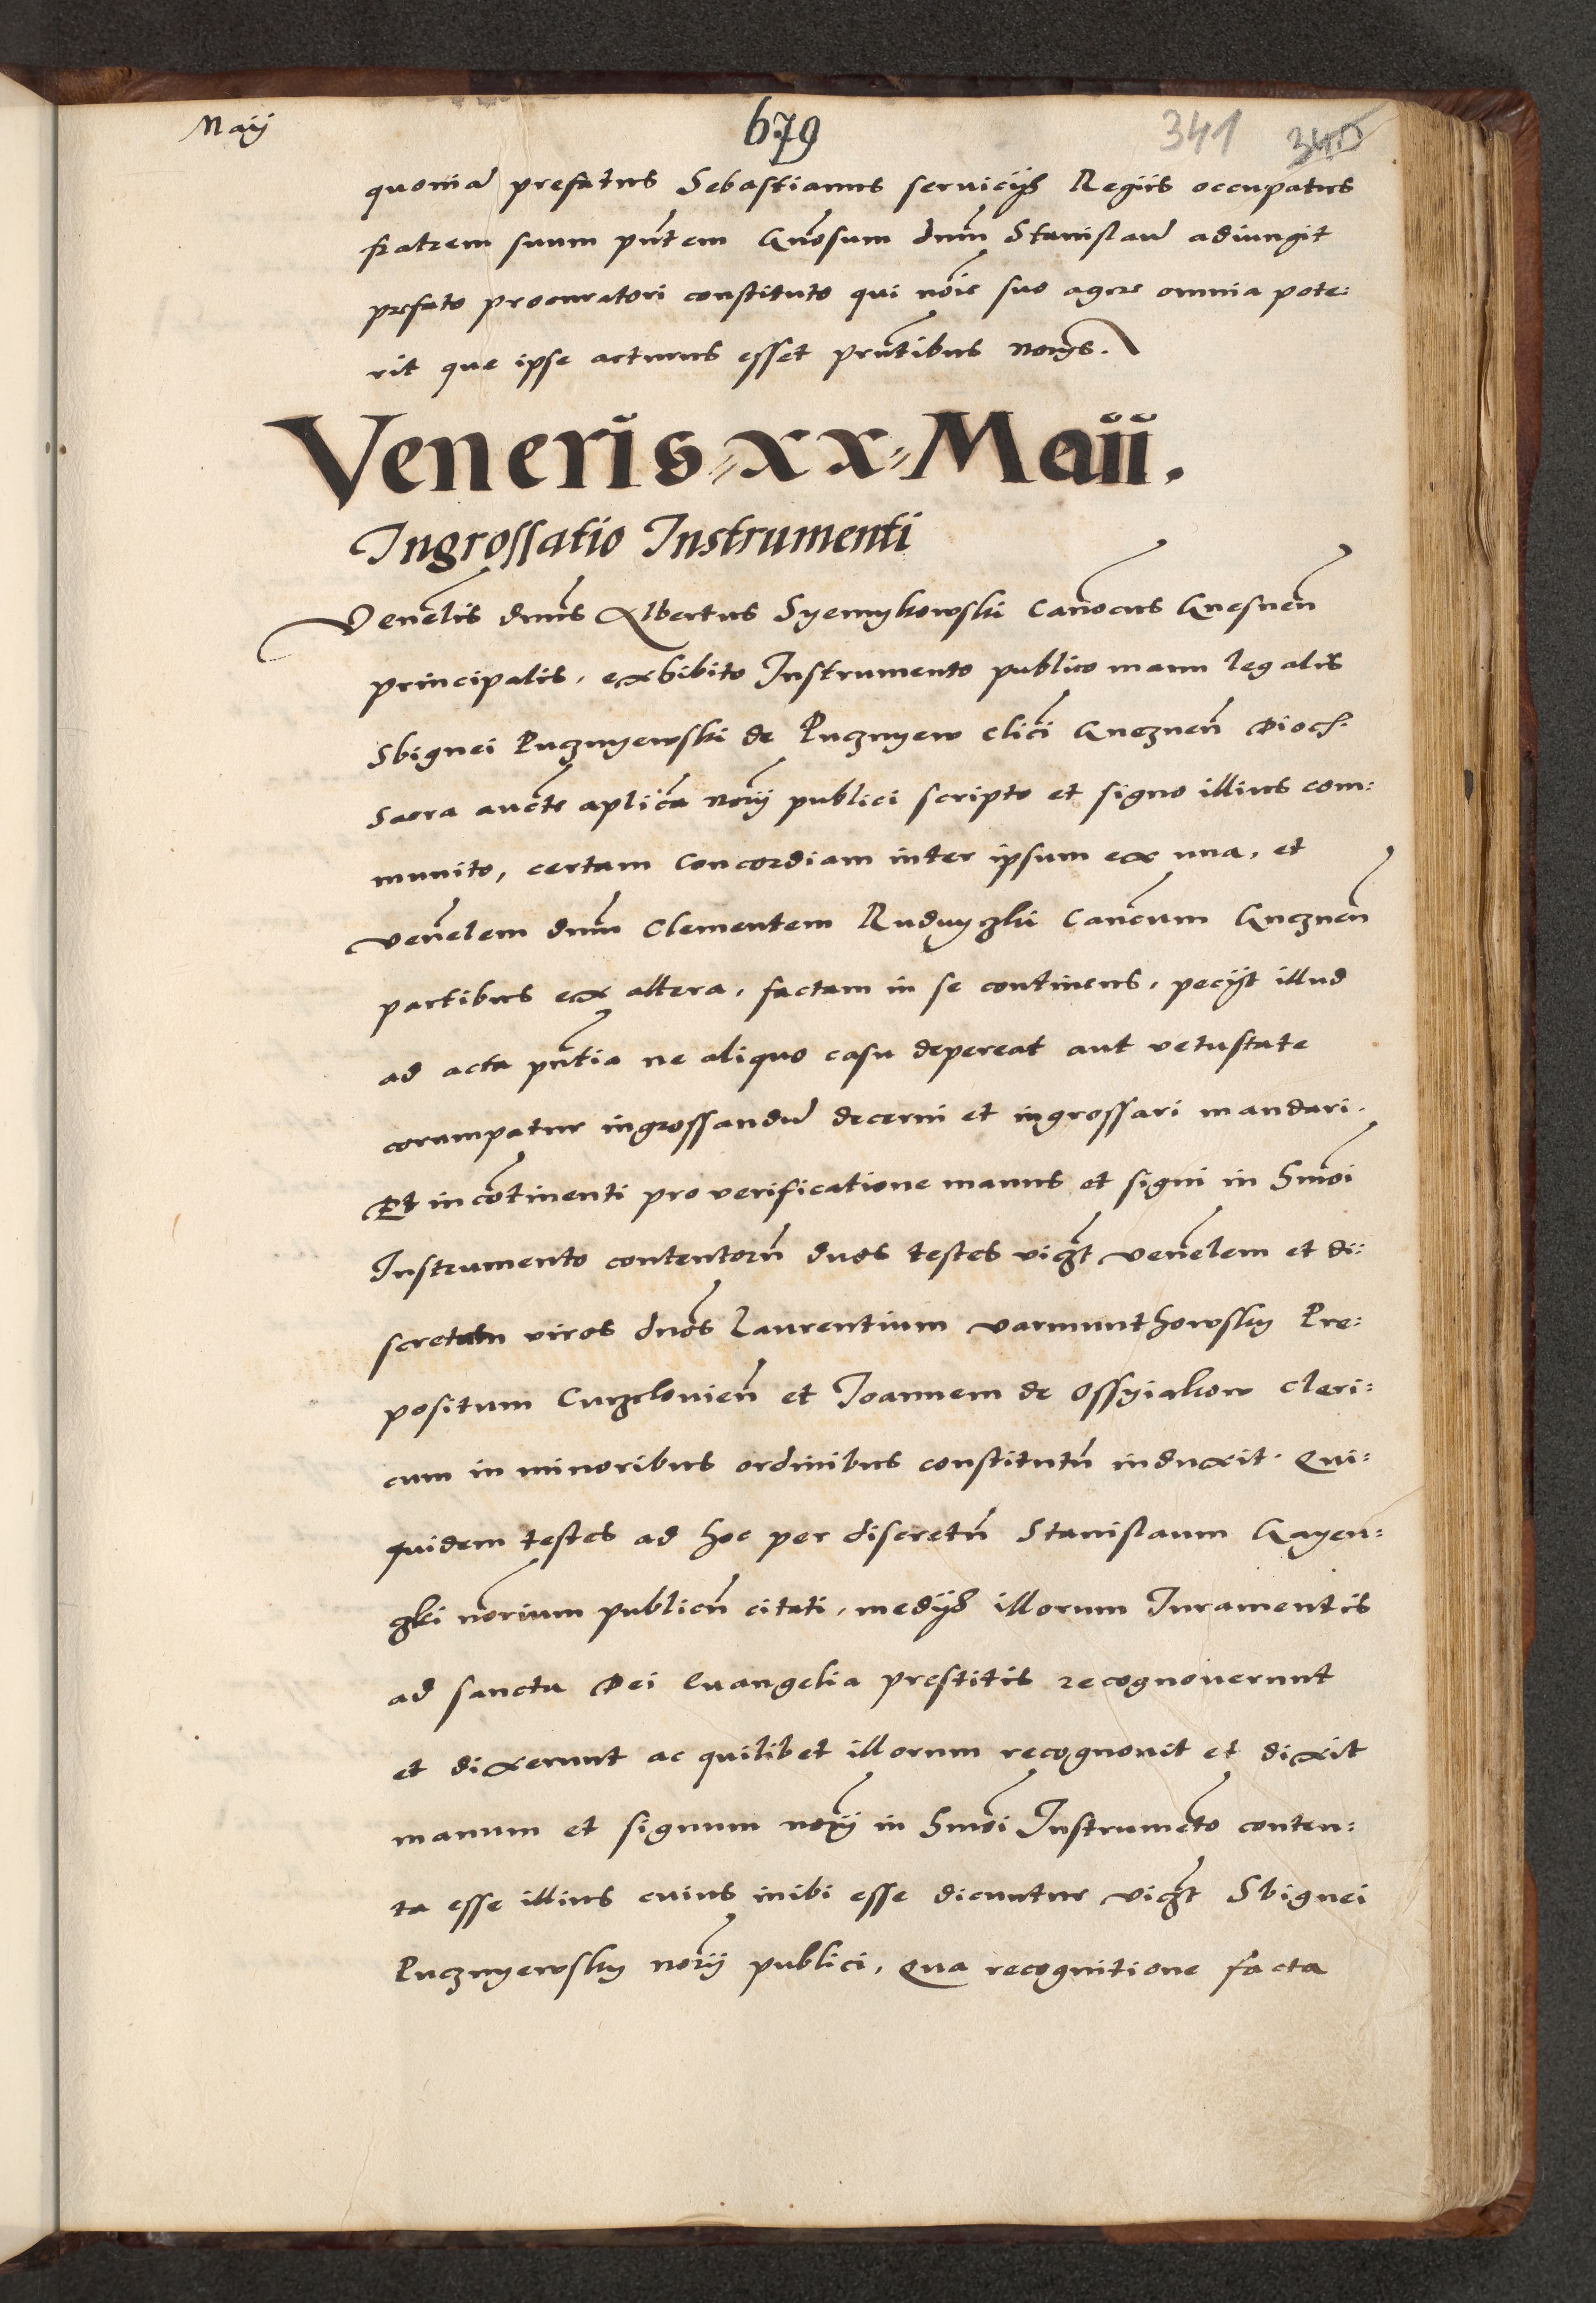 Maij
679
341 340
quoniā prefatus Sebastianus servicijs Regiis occupatus
fratrem suum pñtem Gñosum dñm Stanislaū adiungit
prefato procuratori constituto qui noīe suo agere omnia pote:
rit que ipse acturus esset prñtibus
Veneris xx Maii.
Ingrossatio Instrumenti
Venēlis dñus Albertus Syemykowski Canōcus Gnesnēn
principalis, exhibito Instrumento publico manu legalis
Sbignei Pucznyewski de Pucznyew clīci Gneznēn Dioc
Sacra auctē aplīca norīj publici scripto et signo illius com:
munito, certam concordiam inter ipsum ex una, et
venēlem dñm Clementem Rudnyczki Canōcum Gneznēn
partibus ex altera, factam in se continens, pecijt illud
ad acta pñtia ne aliquo casu depereat aut vetustate
corumpatur ingrossandū decerni et ingrossari mandari.
Et incōtinenti pro verificatione manus et signi in hmōi
Instrumento contentorū duos testes viczt venēlem et di:
scretum viros dnōs Laurentium Varmunthowsky Pre:
positum Curzelouiēn et Joannem de Ossyiakow cleri:
cum in minoribus ordinibus constitutū induxit. Qui:
quidem testes ad hoc per discretū Stanislaum Gayew:
ski norium publicū citati, medijs illorum Iuramentis
ad sancta Dei Euangelia prestitis recognouerunt
et dixerunt ac quilibet illorum recognouit et dixit
manum et signum norīj in hmōi Instrumēto conten:
ta esse illius cuius inibi esse dicuntur viczt Sbignei
Pucznyewsky norīj publici, Qua recognitione facta